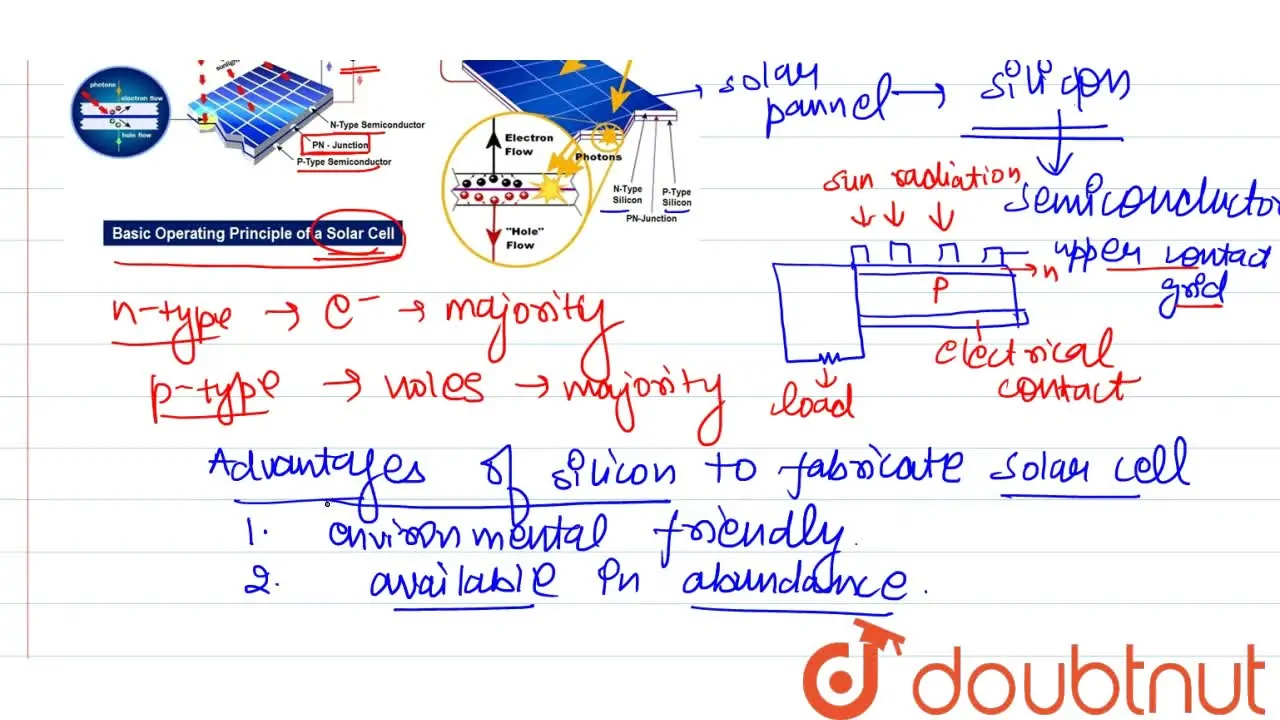 photons
electron flow
hole flow
sunlight
N-Type Semiconductor
PN - Junction
P-Type Semiconductor
Basic Operating Principle of a Solar Cell
Electron
Flow
Photons
"Hole"
Flow
N-Type
Silicon
P-Type
Silicon
PN-Junction
solar
pannel → silicon
semiconductor
sun radiation
upper contact
grid
n
P
electrical
contact
load
n-type → e⁻ → majority
p-type → holes → majority
Advantages of silicon to fabricate solar cell
1. environmental friendly.
2. available in abundance.
doubtnut